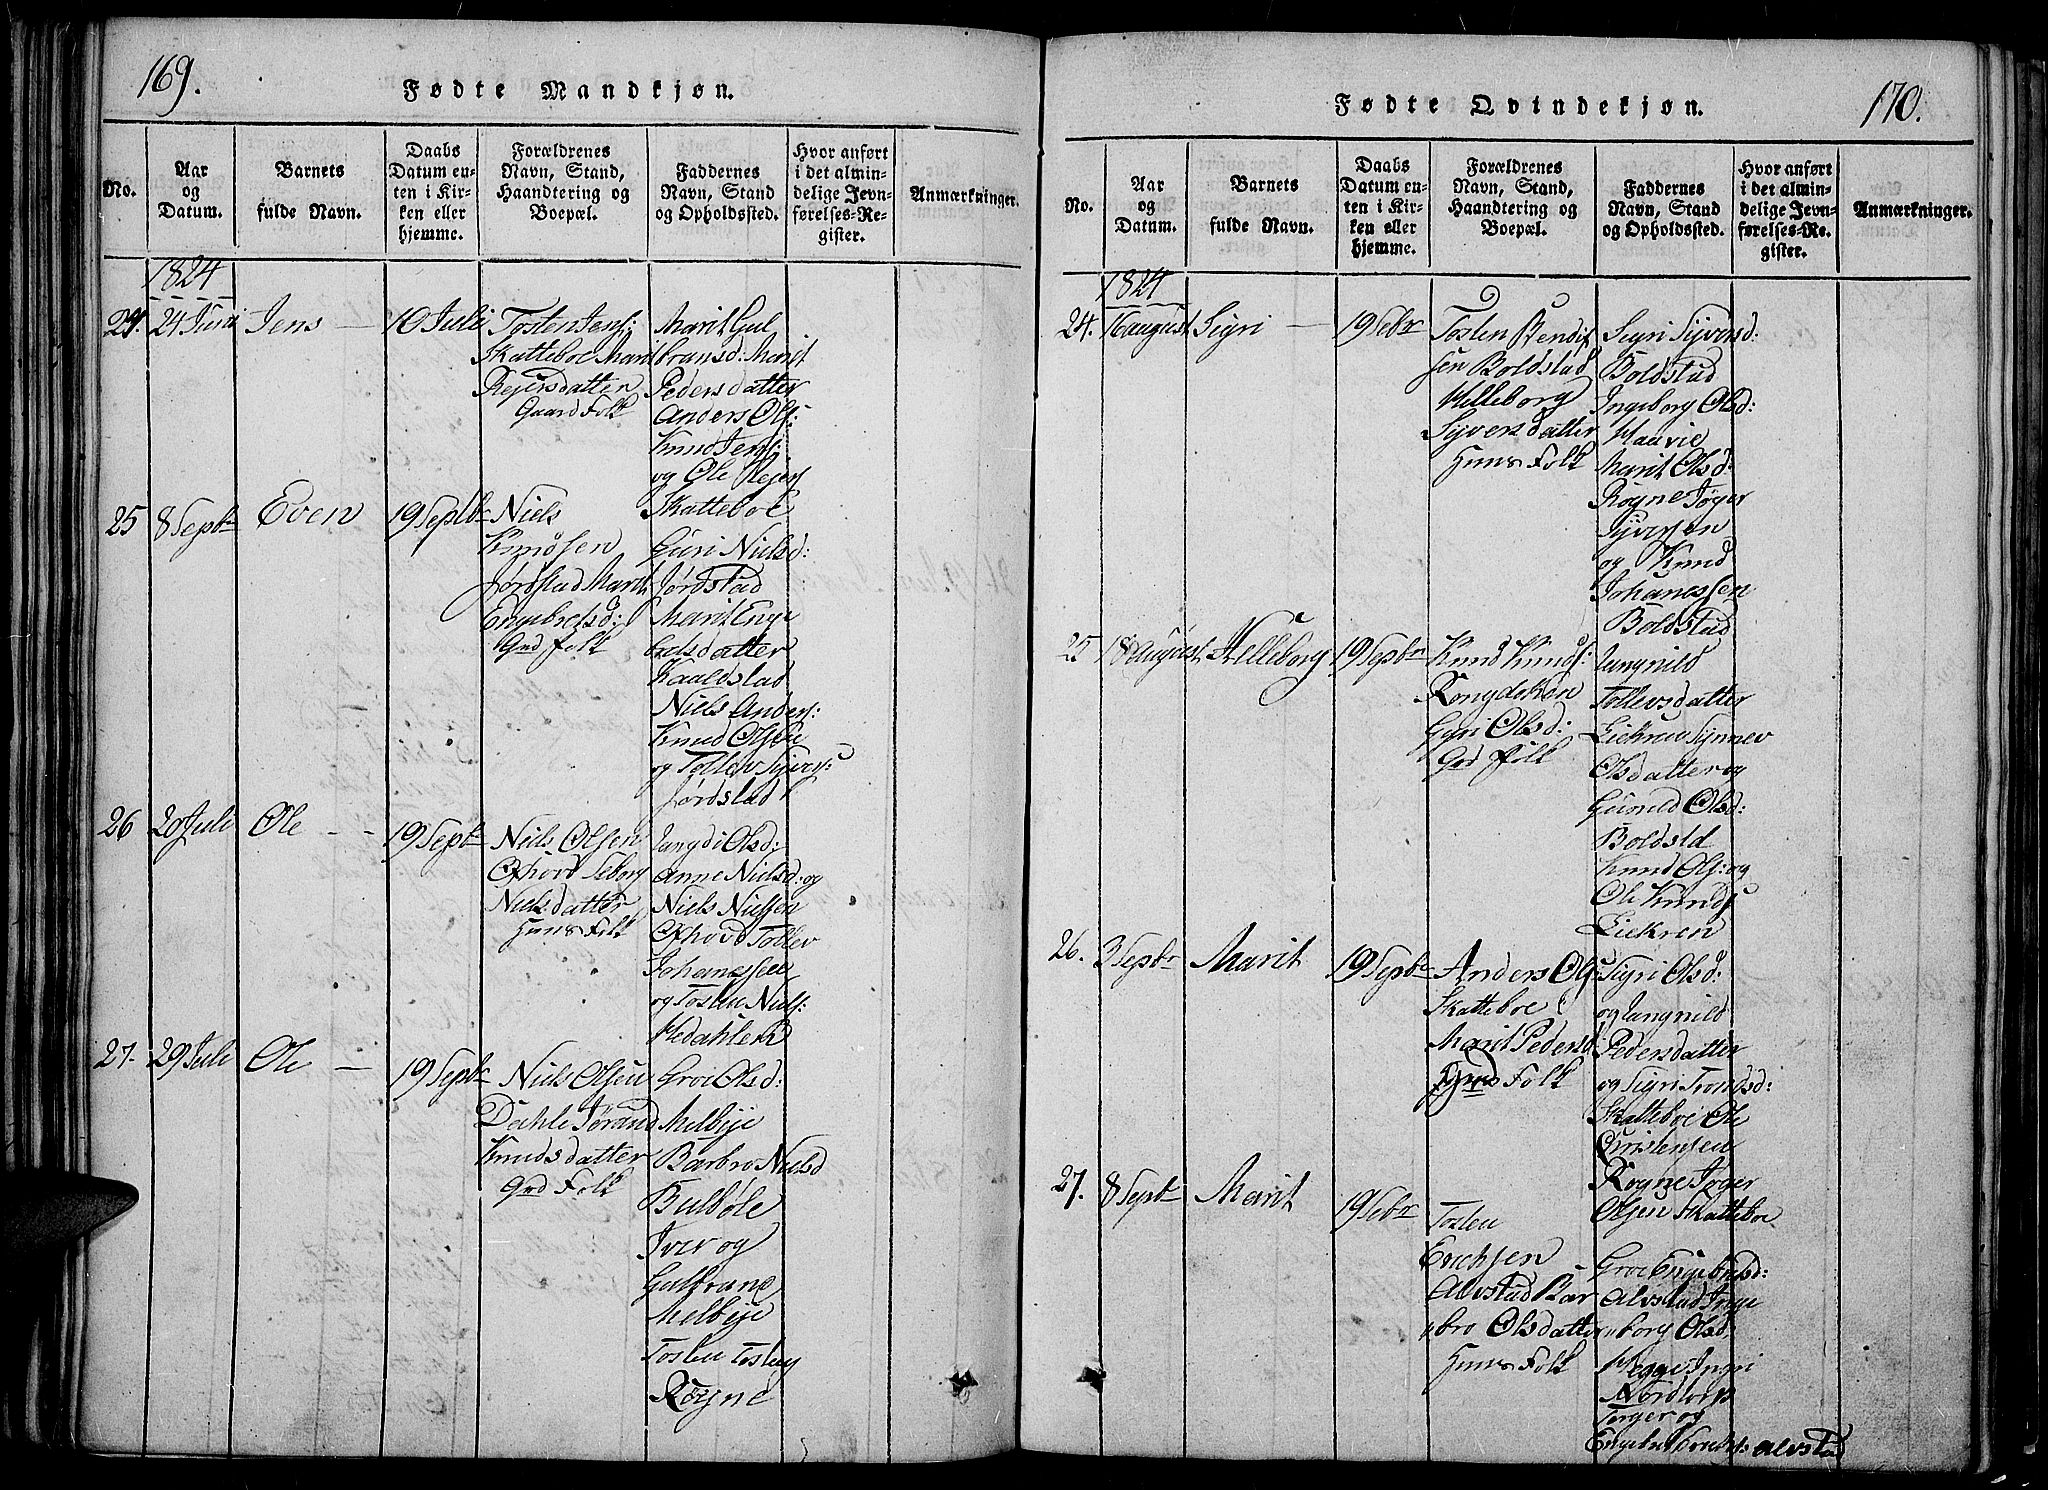 169.
Fødte Mandkjøn.
No.
Aar
og
Datum.
Barnets
fulde Navn.
Daabs
Datum en-
ten i Kir-
ken eller
hjemme.
Forældrenes
Navn, Stand,
Haandtering og
Boepæl.
Faddernes
Navn, Stand
og Opholdssted.
Hvor anført
i det almin-
delige Jevn-
førelses-Re-
gister.
Anmærkninger.
1824
24. 24 Juni Jens — 10 Juli
Tosten Jens:
Skatteboe Marit
Rejersdatter
Gaard Folk
Marit Gul
bransd: Marit
Pedersdatter
Anders Ols:
Knud Jens:
og Ole Rejers
Skatteboe
25 8 Septbr Even 19 Septbr
Niels
Knudsen
Jørdstad Marit
Engebretsd:
Grd folk
Guri Nielsd:
Jørdstad
Marit Enge
bretsdatter
Kaaldstad
Niels Anders:
Knud Olsen
og Tollev Syvers:
Jørdstad
26 20 Juli Ole - - 19 Septbr
Niels Olsen
Ofhövd Seborg
Nielsdatter
Huus Folk
Langdi Olsd:
Anne Nielsd: og
Niels Nielsen
Ofhövd Tollev
Johanessen
og Tosten Niels:
Hedahlen
27. 29 Juli Ole — 19 Septbr
Niels Olsen
Dæhle Jørand
Knudsdatter
Grd Folk
Groe Olsd:
Melbye
Barbro Nielsd
Bulbøle
Iver og
Gulbrand
Melbye
Tosten Tosten
Rogne
170.
Fødte Qvindekjøn.
No.
Aar
og
Datum.
Barnets
fulde Navn.
Daabs
Datum en-
ten i Kir-
ken eller
hjemme.
Forældrenes
Navn, Stand,
Haandtering og
Boepæl.
Faddernes
Navn, Stand
og Opholdssted.
Hvor anført
i det almin-
delige Jevn-
førelses-Re-
gister.
Anmærkninger.
1824
24. 16 august Sigri — 19 Sebr
Tosten Bendix
sen Boldstad
Helleborg
Syversdatter
Huus Folk
Sigri Syversd:
Boldstad
Ingeborg Olsd:
Haavie
Marit Olsd:
Rogne Tøger
Syversen
og Knud
Johanessen
Boldstad
25 18 august Helleborg 19 Septbr
Knud Knuds:
Guri Olsd:
Grd folk
Langnild
Tollevsdatter
Liekren Synnev
Olsdatter og
Gunild Olsd:
Boldstd
Knud Ols: og
Ole Knuds
Liekren
26. 3 Septbr Marit 19 Septbr
Anders Ols
Skatteboe
Marit Pedersd
Grd Folk
Sigri Olsd:
og Langnild
Pedersdatter
og Sigri Trondsd:
Skatteboe Ole
Christensen
Rogne Tøger
Olsen Skatteboe
27. 8 Septbr Marit 19 Sebr
Tosten
Erichsen
Alvstad Bar
"bro Olsdatter
Huus Folk
Groe Engebretsd:
Alvstad Inge
"borg Olsd,
Hegge Ingri
Nordtorp
Torger og
Alvstad